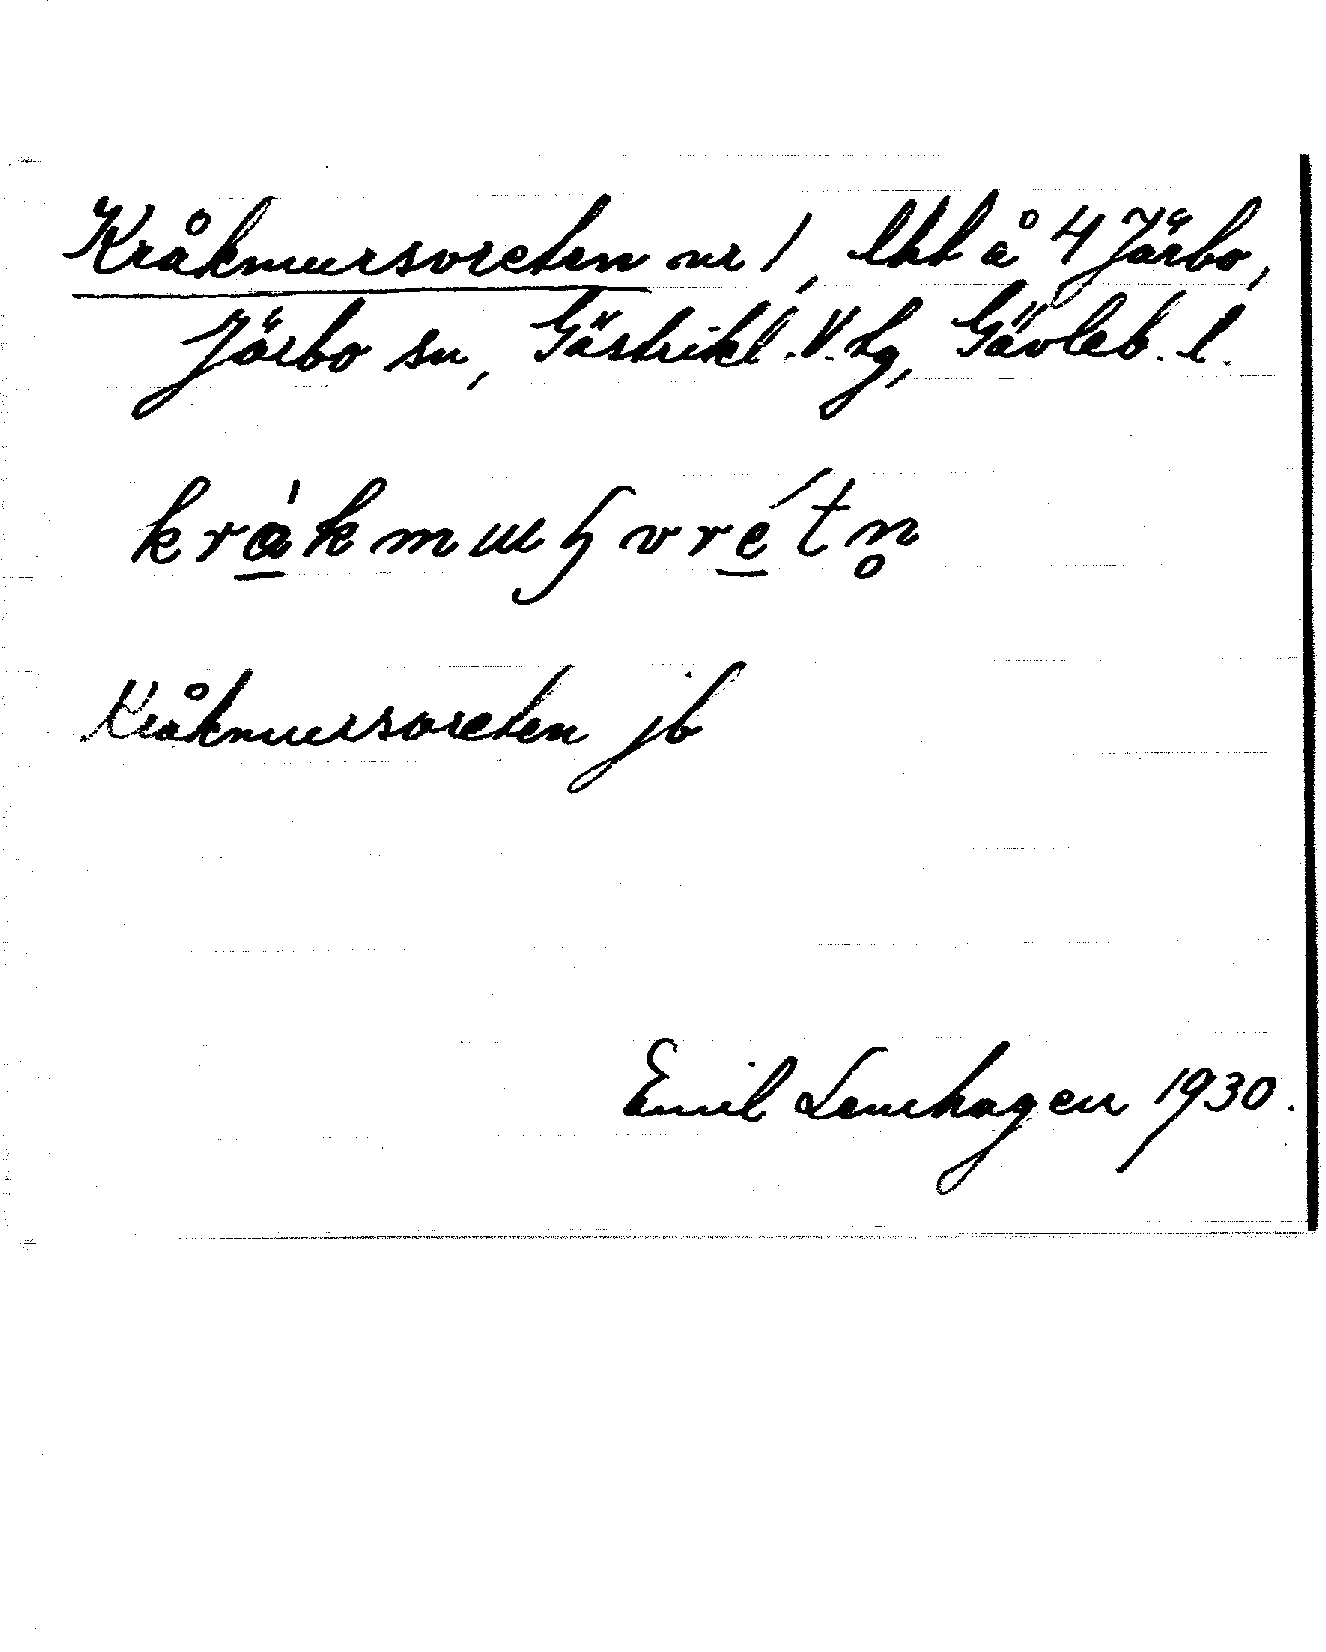 Kråkmursvreten nr 1, lht å 4 Järbo,
Järbo sn, Gästrikl. V. tg, Gävleb. l.
kràkmuʂvrétn̥
Kråkmursvreten jb
Emil Lennhagen 1930.